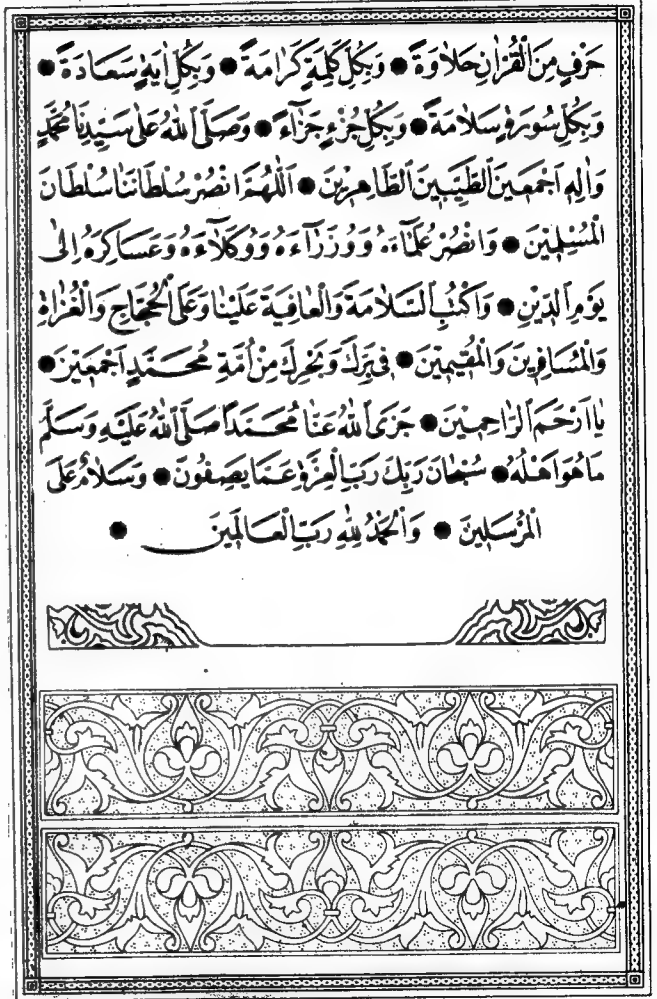 حَرْفٍ مِنَ الْقُرْاٰنِ حَلَاوَةً ● وَبِكُلِّ كَلِمَةٍ كَرَامَةً ● وَبِكُلِّ اٰيَةٍ سَعَادَةً ●
وَبِكُلِّ سُورَةٍ سَلَامَةً ● وَبِكُلِّ جُزْءٍ جَزَآءً ● وَصَلَّى اللهُ عَلٰى سَيِّدِنَا مُحَمَّدٍ
وَاٰلِهِ اَجْمَعِينَ الطَّيِّبِينَ الطَّاهِرِينَ ● اَللّٰهُمَّ انْصُرْ سُلْطَانَنَا سُلْطَانَ
الْمُسْلِمِينَ ● وَانْصُرْ عُلَمَاءَهُ وَوُزَرَآءَهُ وَوُكَلَآءَهُ وَعَسَاكِرَهُ اِلٰى
يَوْمِ الدِّينِ ● وَاكْتُبِ السَّلَامَةَ وَالْعَافِيَةَ عَلَيْنَا وَعَلَى الْحُجَّاجِ وَالْغُزَاةِ
وَالْمُسَافِرِينَ وَالْمُقِيمِينَ ● فِى بَرِّكَ وَبَحْرِكَ مِنْ اُمَّةِ مُحَمَّدٍ اَجْمَعِينَ ●
يَا اَرْحَمَ الرَّاحِمِينَ ● جَزَى اللهُ عَنَّا مُحَمَّدًا صَلَّى اللهُ عَلَيْهِ وَسَلَّمَ
مَا هُوَ اَهْلُهُ ● سُبْحَانَ رَبِّكَ رَبِّ الْعِزَّةِ عَمَّا يَصِفُونَ ● وَسَلَامٌ عَلَى
الْمُرْسَلِينَ ● وَالْحَمْدُ لِلّٰهِ رَبِّ الْعَالَمِينَ ●